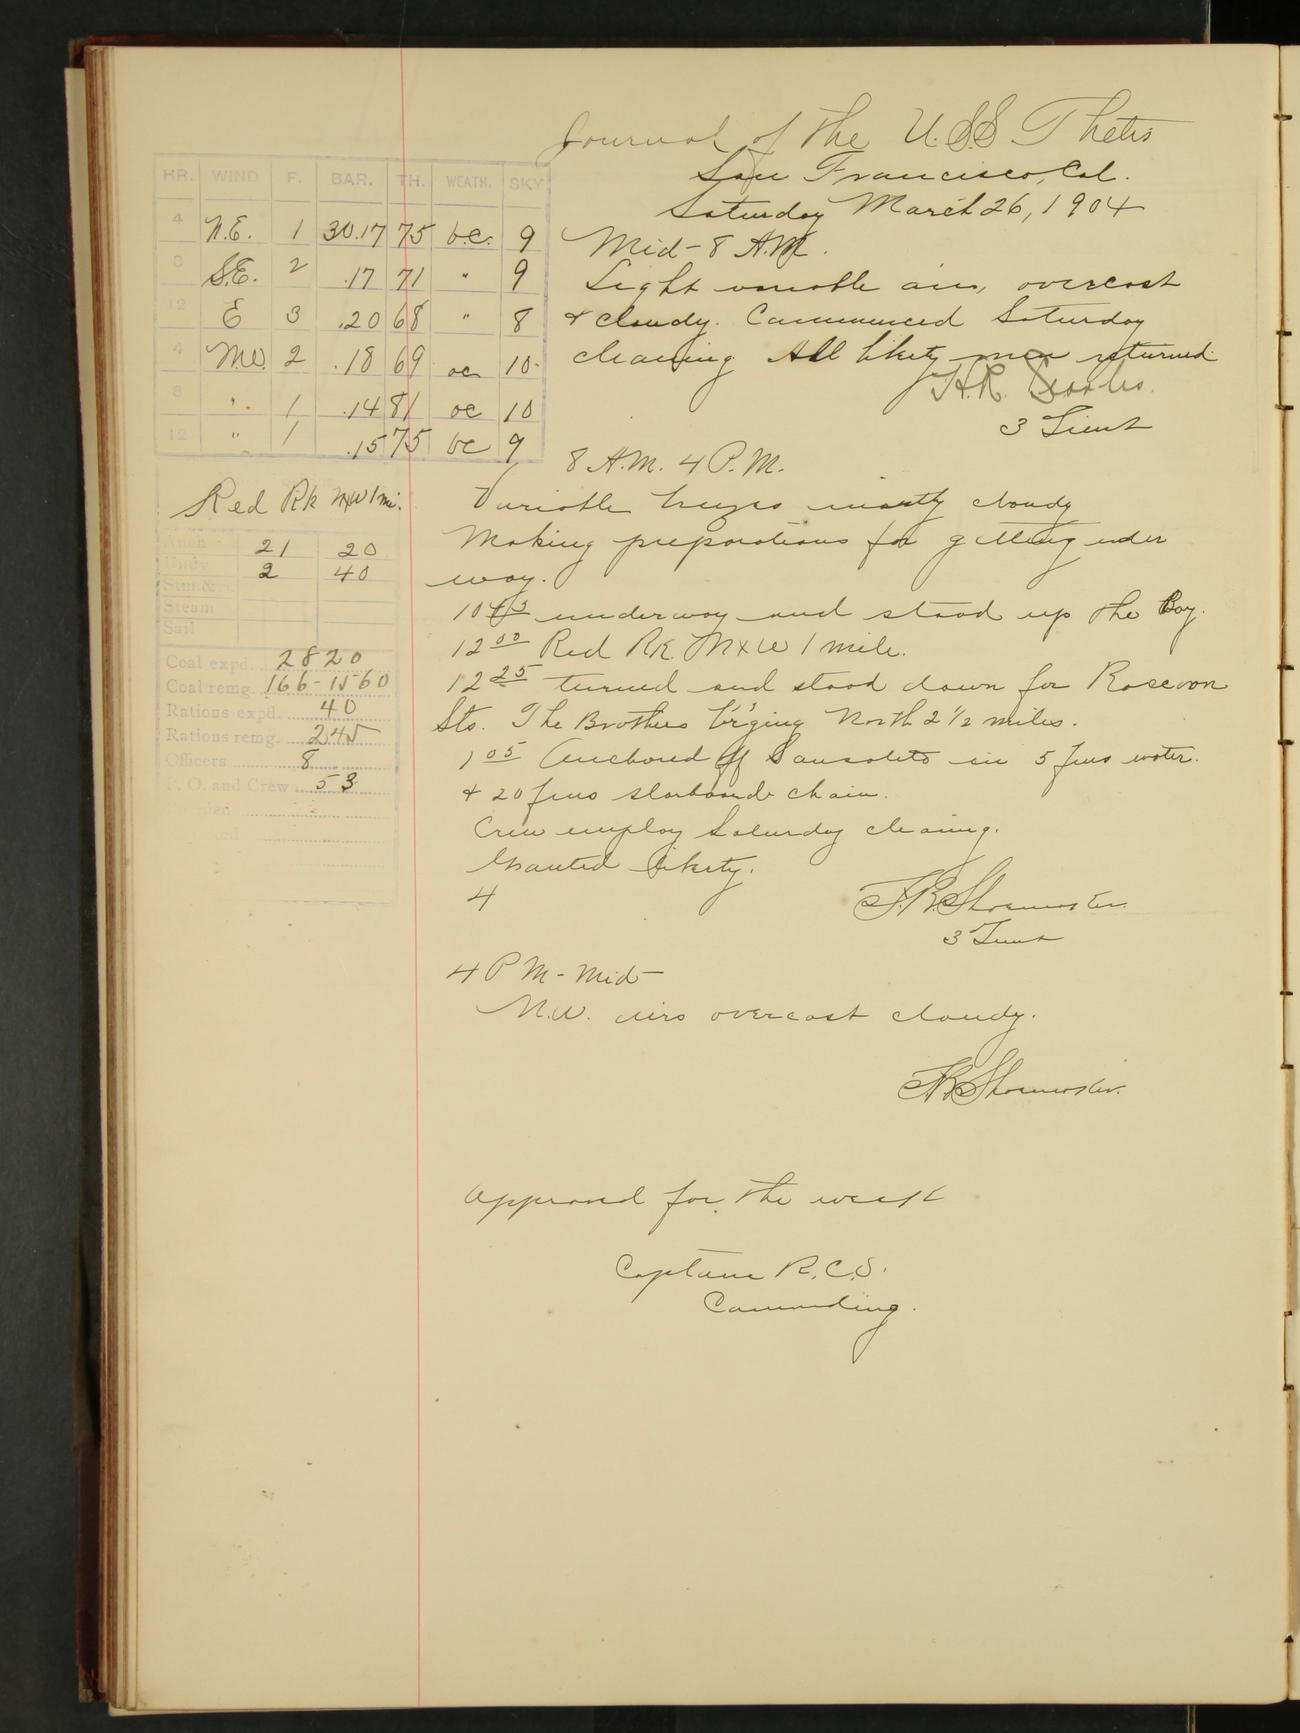 Journal of the U.S.S Thetis
San Francisco, Cal.
Saturday March 26, 1904
HR. WIND F. BAR. TH. WEATH. SKY
4 N.E. 1 30.17 75 b.c. 9
8 S.E. 2 .17 71 " 9
12 E 3 .20 68 " 8
4 N.W. 2 .18 69 oc 10
8 " 1 .14 81 oc 10
12 " 1 .15 75 bc 9
Mid - 8 A.M.
Light variable airs, overcast
& cloudy. Commenced Saturday
cleaning All liberty men returned.
H.R.
3 Lieut
8 A.M. 4 P.M.
Variable breezes mostly cloudy
Making preparations for getting under
way.
10 45 underway and stood up the Bay.
12 00 Red Rk. NxW 1 mile.
12 25 turned and stood down for Raccoon
Sts. The Brothers br'g'ing North 2 1/2 miles.
1 05 Anchored off Sausalito in 5 fms water.
& 20 fms starboard chain.
Crew employ Saturday cleaning.
Granted liberty.
4
F.R. Shoemaker
3 Lieut
4 P M - Mid
N.W. airs overcast cloudy.
F.R. Shoemaker.
Approved for the week
Captain R.C.S.
Commding.
Red Rk NxW 1 mi.
Anch 21 20
Undy 2 40
Stm. &
Steam
Sail
Coal expd. 2820
Coal remg. 166-1560
Rations expd. 40
Rations remg. 245
Officers 8
P. O. and Crew 53